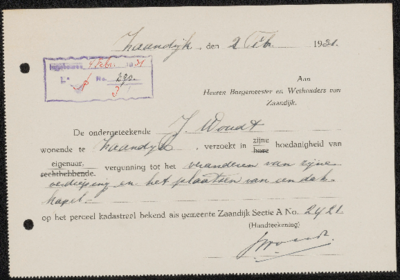 Zaandijk, den 2 Feb. 1931.
Ingekomen 4 Febr. 1931
Lᵃ No. 230.
Aan
Heeren Burgemeester en Wethouders van
Zaandijk.
De ondergeteekende J Woudt
wonende te Zaandijk, verzoekt in zijne hoedanigheid van
hare
eigenaar, vergunning tot het veranderen van zijne
rechthebbende.
verdieping en het plaatsen van en dak
kapel.
op het perceel kadastraal bekend als gemeente Zaandijk Sectie A No. 2421.
(Handteekening)
J Woudt.